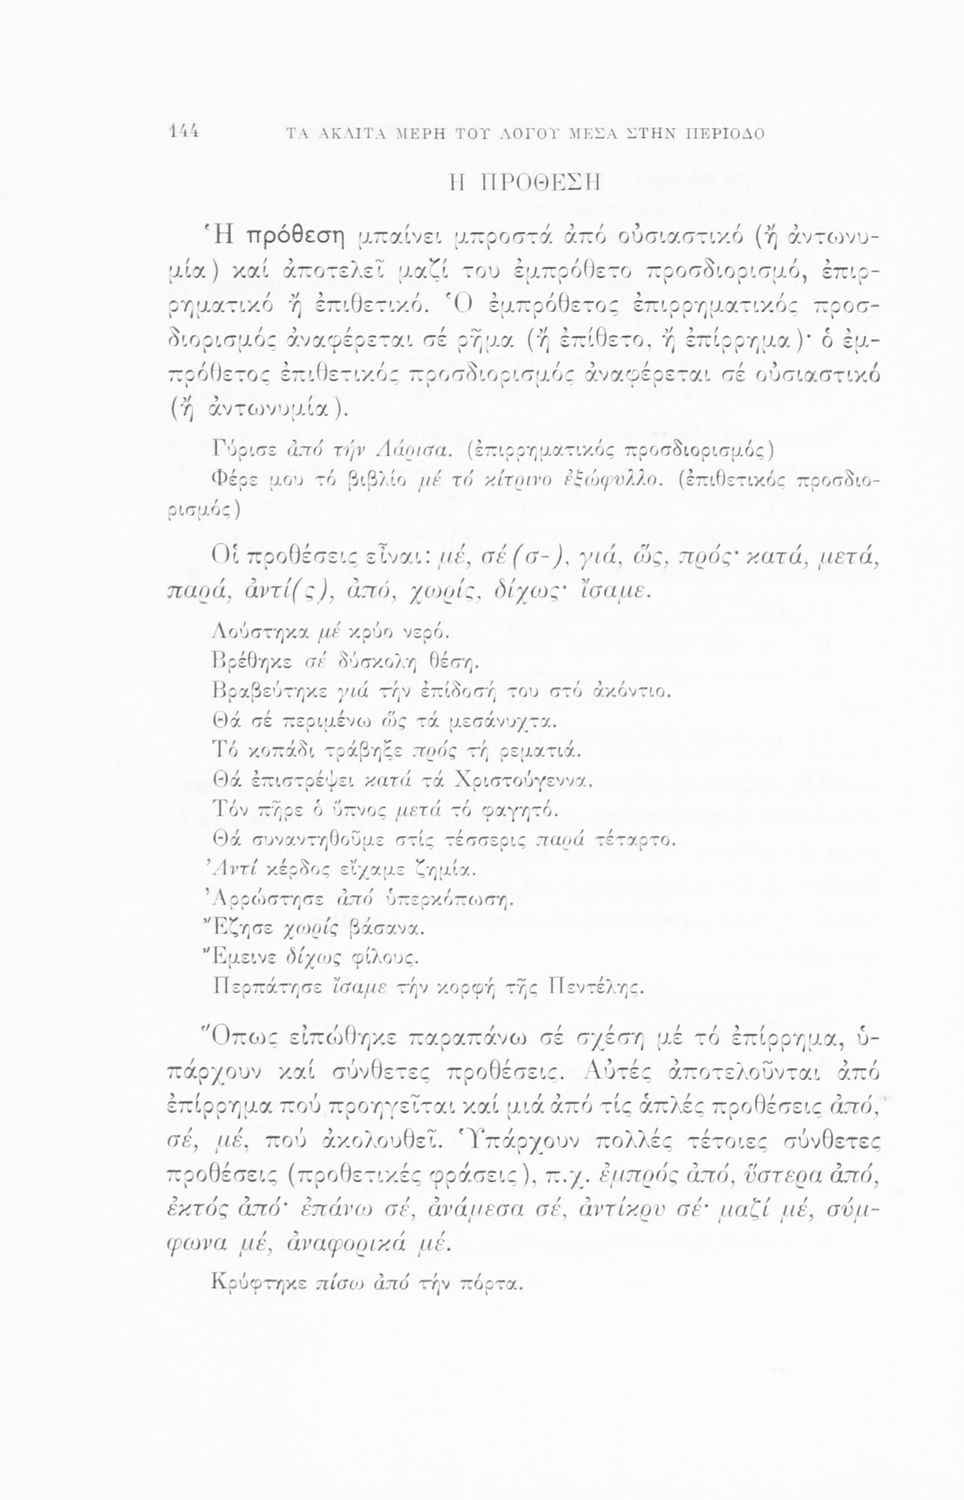 144 ΤΑ ΑΚΛΙΤΑ ΜΕΡΗ ΤΟΥ ΛΟΓΟΥ ΜΕΣΑ ΣΤΗΝ ΠΕΡΙΟΔΟ
Η ΠΡΟΘΕΣΗ
Ἡ πρόθεση μπαίνει μπροστά ἀπό οὐσιαστικό (ἤ ἀντωνυ-
μία) καί ἀποτελεῖ μαζί του ἐμπρόθετο προσδιορισμό, ἐπιρ-
ρηματικό ἤ ἐπιθετικό. Ὁ ἐμπρόθετος ἐπιρρηματικός προσ-
διορισμός ἀναφέρεται σέ ρῆμα (ἤ ἐπίθετο, ἤ ἐπίρρημα)· ὁ ἐμ-
πρόθετος ἐπιθετικός προσδιορισμός ἀναφέρεται σέ οὐσιαστικό
(ἤ ἀντωνυμία).
Γύρισε ἀπό τήν Λάρισα. (ἐπιρρηματικός προσδιορισμός)
Φέρε μου τό βιβλίο μέ τό κίτρινο ἐξώφυλλο. (ἐπιθετικός προσδιο-
ρισμός)
Οἱ προθέσεις εἶναι: μέ, σέ (σ-), γιά, ὥς, πρός· κατά, μετά,
παρά, ἀντί(ς), ἀπό, χωρίς, δίχως· ἴσαμε.
Λούστηκα μέ κρύο νερό.
Βρέθηκε σέ δύσκολη θέση.
Βραβεύτηκε γιά τήν ἐπίδοσή του στό ἀκόντιο.
Θά σέ περιμένω ὥς τά μεσάνυχτα.
Τό κοπάδι τράβηξε πρός τή ρεματιά.
Θά ἐπιστρέψει κατά τά Χριστούγεννα.
Τόν πῆρε ὁ ὕπνος μετά τό φαγητό.
Θά συναντηθοῦμε στίς τέσσερις παρά τέταρτο.
Ἀντί κέρδος εἴχαμε ζημία.
Ἀρρώστησε ἀπό ὑπερκόπωση.
Ἔζησε χωρίς βάσανα.
Ἔμεινε δίχως φίλους.
Περπάτησε ἴσαμε τήν κορφή τῆς Πεντέλης.
Ὅπως εἰπώθηκε παραπάνω σέ σχέση μέ τό ἐπίρρημα, ὑ-
πάρχουν καί σύνθετες προθέσεις. Αὐτές ἀποτελοῦνται ἀπό
ἐπίρρημα πού προηγεῖται καί μιά ἀπό τίς ἁπλές προθέσεις ἀπό,
σέ, μέ, πού ἀκολουθεῖ. Ὑπάρχουν πολλές τέτοιες σύνθετες
προθέσεις (προθετικές φράσεις), π.χ. ἐμπρός ἀπό, ὕστερα ἀπό,
ἐκτός ἀπό· ἐπάνω σέ, ἀνάμεσα σέ, ἀντίκρυ σέ· μαζί μέ, σύμ-
φωνα μέ, ἀναφορικά μέ.
Κρύφτηκε πίσω ἀπό τήν πόρτα.